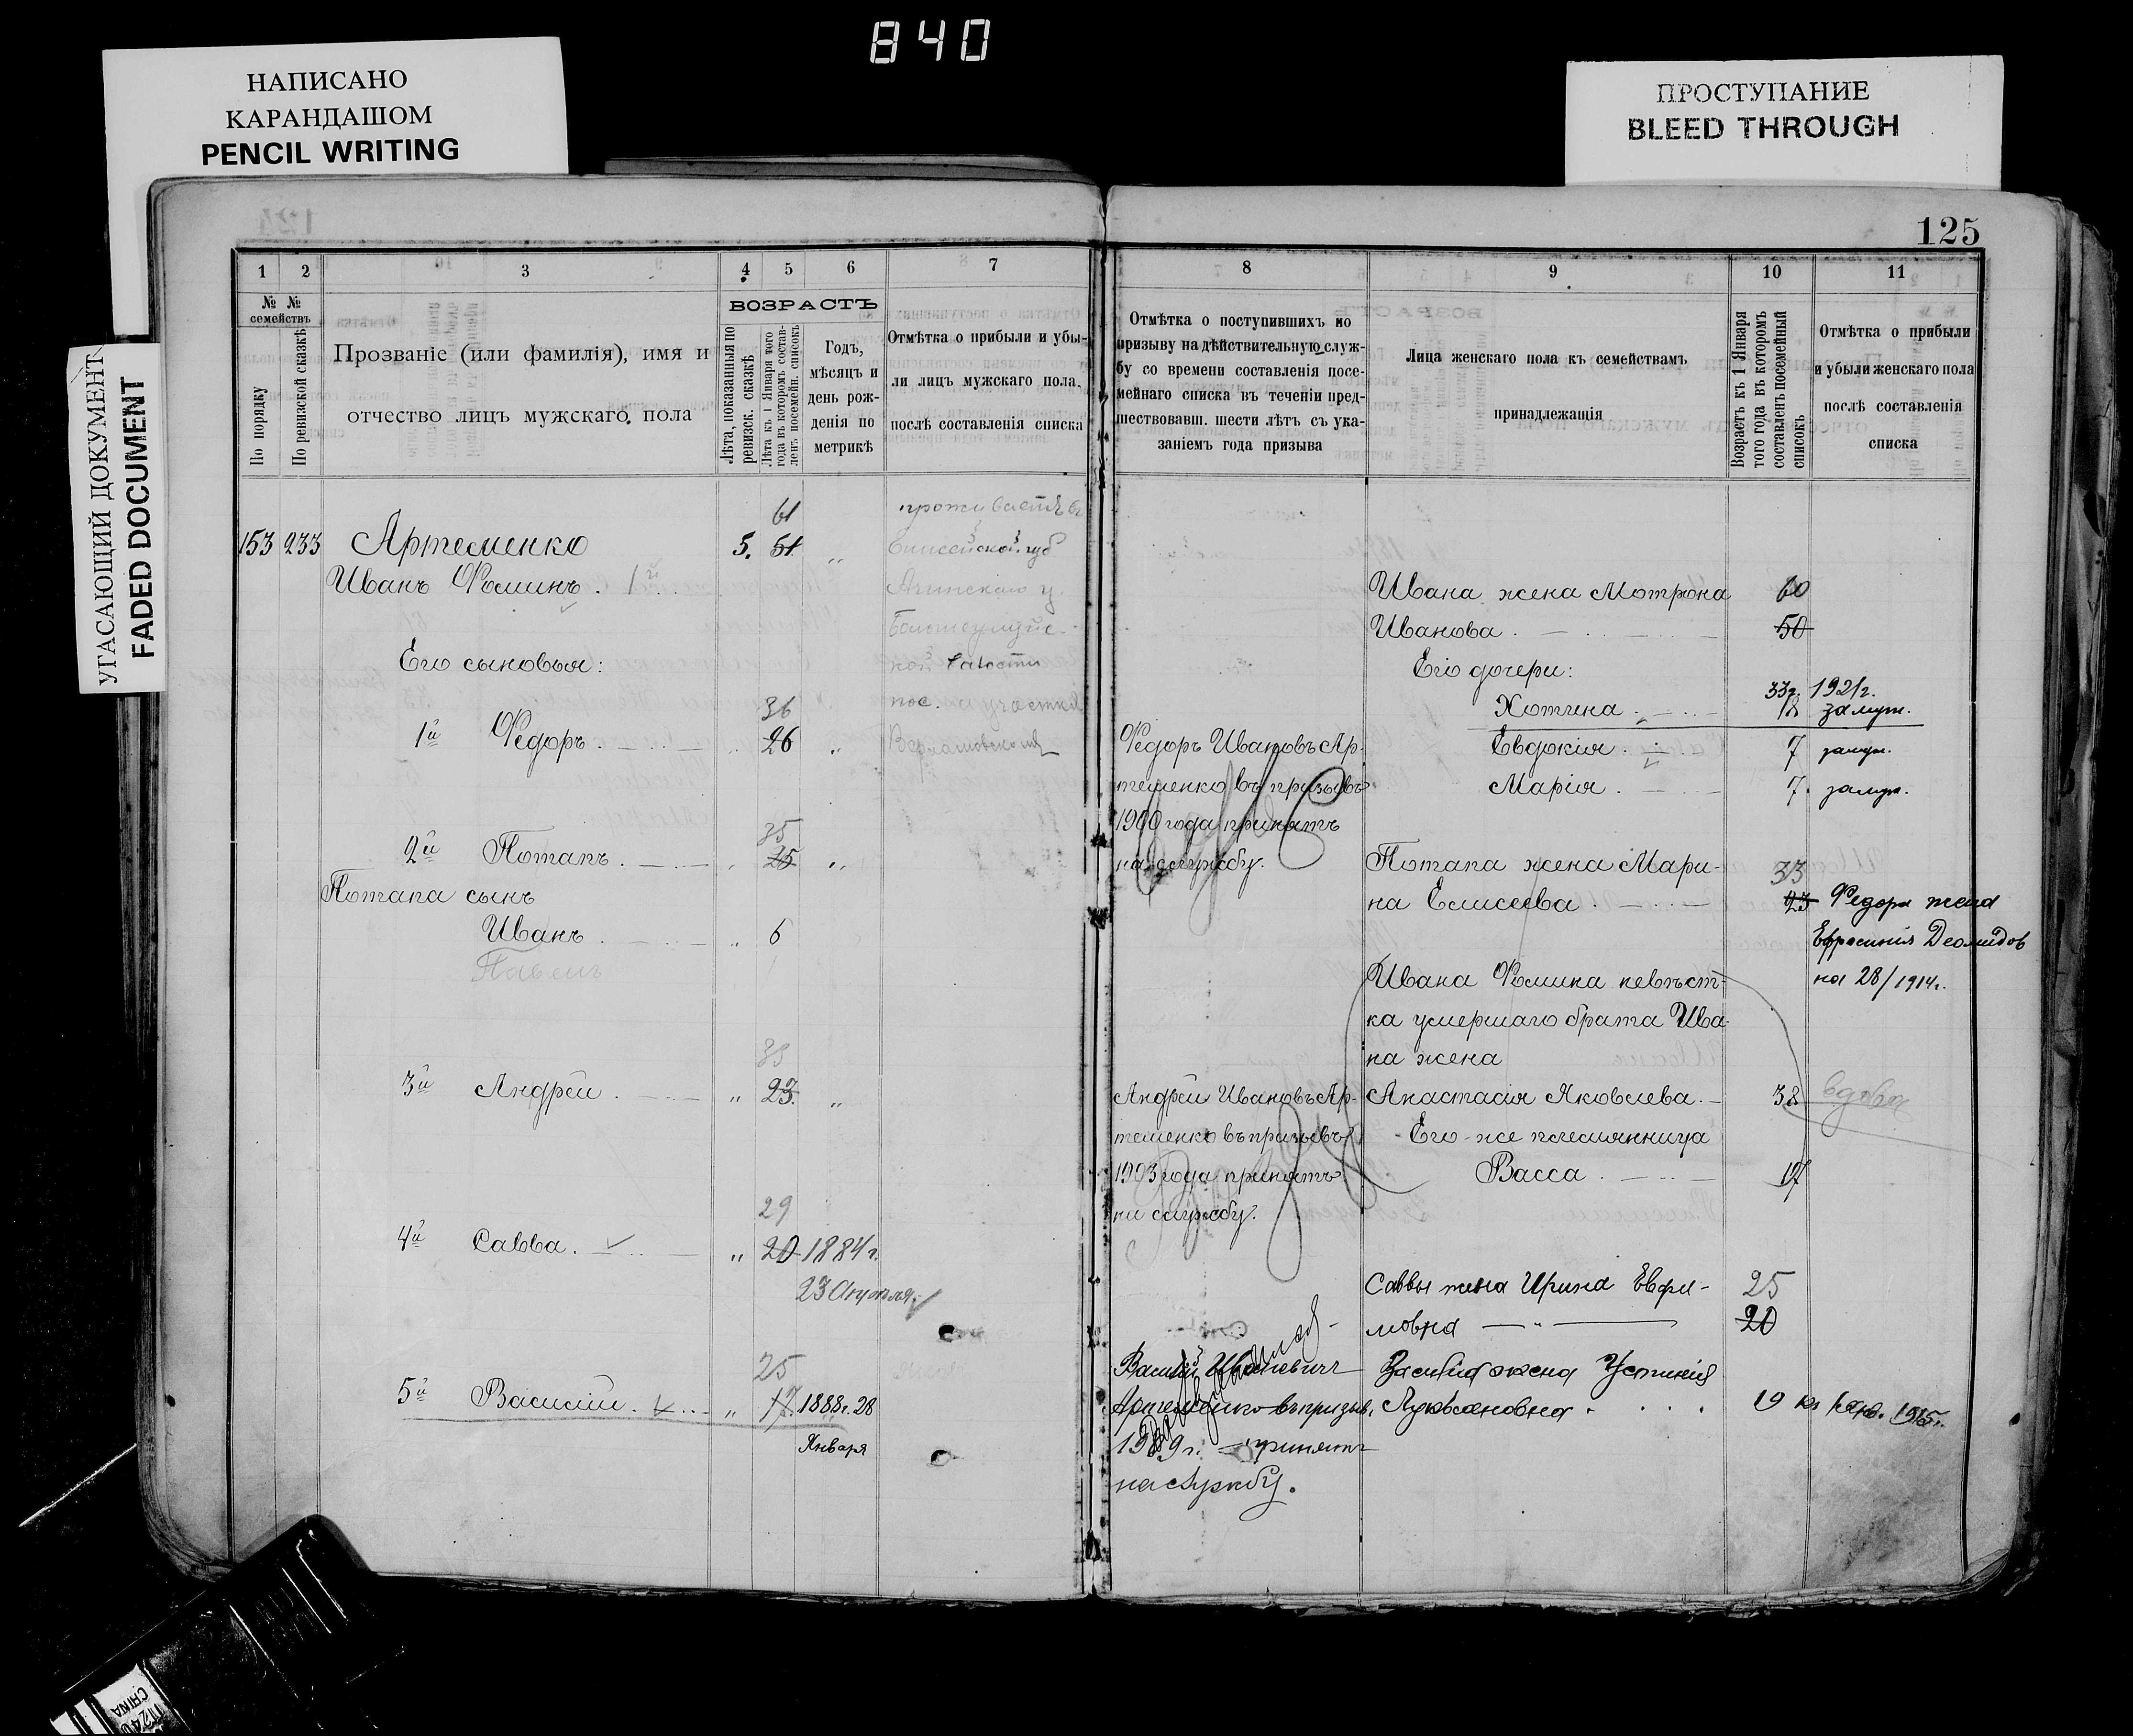 840
НАПИСАНО
КАРАНДАШОМ
PENCIL WRITING
ПРОСТУПАНИЕ
BLEED THROUGH
УГАСАЮЩИЙ ДОКУМЕНТ
FADED DOCUMENT
125
1 2 3 4 5 6 7
№ № семействъ
По порядку
По ревизской сказкѣ
Прозваніе (или фамилія), имя и
отчество лицъ мужскаго пола
ВОЗРАСТЪ
Лѣта, показанныя по
ревизск. сказкѣ
Лѣта къ 1 Января того
года въ которомъ состав-
ленъ посемейн. списокъ
Годъ,
мѣсяцъ и
день рож-
денія по
метрикѣ
Отмѣтка о прибыли и убы-
ли лицъ мужскаго пола,
послѣ составленія списка
61
153 233 Артеменко 5. 51 „
Иванъ Ѳоминъ. 1й
Его сыновья:
36
1й Ѳедоръ. 26 „
35
2й Потапъ. „ 25 „
Потапа сынъ
Иванъ „ 6
Павелъ
3й Андрей „ 23. „
29
4й Савва. „ 20 1884 г.
23 Апрѣля.
25
5й Василій. „ 17. 1888 г. 28
Января
проживаетъ въ
Енисейской губ
Ачинскаго у.
кой Волости
пос. на участкѣ
8 9 10 11
Отмѣтка о поступившихъ по
призыву на дѣйствительную служ-
бу со времени составленія посе-
мейнаго списка въ теченіи пред-
шествовавш. шести лѣтъ съ ука-
заніемъ года призыва
Лица женскаго пола къ семействамъ
принадлежащія
Возрастъ къ 1 Января
того года въ которомъ
составленъ посемейный
списокъ
Отмѣтка о прибыли
и убыли женскаго пола
послѣ составленія
списка
Ѳедоръ Ивановъ Ар-
теменко въ призывъ
1900 года принятъ
на службу.
Андрей Ивановъ Ар-
теменко въ призывъ
1903 года принятъ
на службу.
Василій Ивановичъ
Артеменко въ призыв.
1909 г. принятъ
на службу.
Ивана жена Мотрона 60
Иванова. 50
Его дочери:
33г. 1921г.
Хотина. 18 замуж.
Евдокія. 7 замуж.
Марія. 7. замуж.
Потапа жена Мари- 33
на Елисеева. 23
Ѳедора жена
Ефросинія Деомидов
на 28/1914г.
Ивана Ѳомина невѣст-
ка умершаго брата Ива-
на жена
Анастасія Яковлева. 38 вдова
Его-же племянница
Васса 17
Саввы жена Ирина Евфи- 25
мовна 20
Василія жена Устинія
Лукьяновна. 19 къ Янв. 1915г.